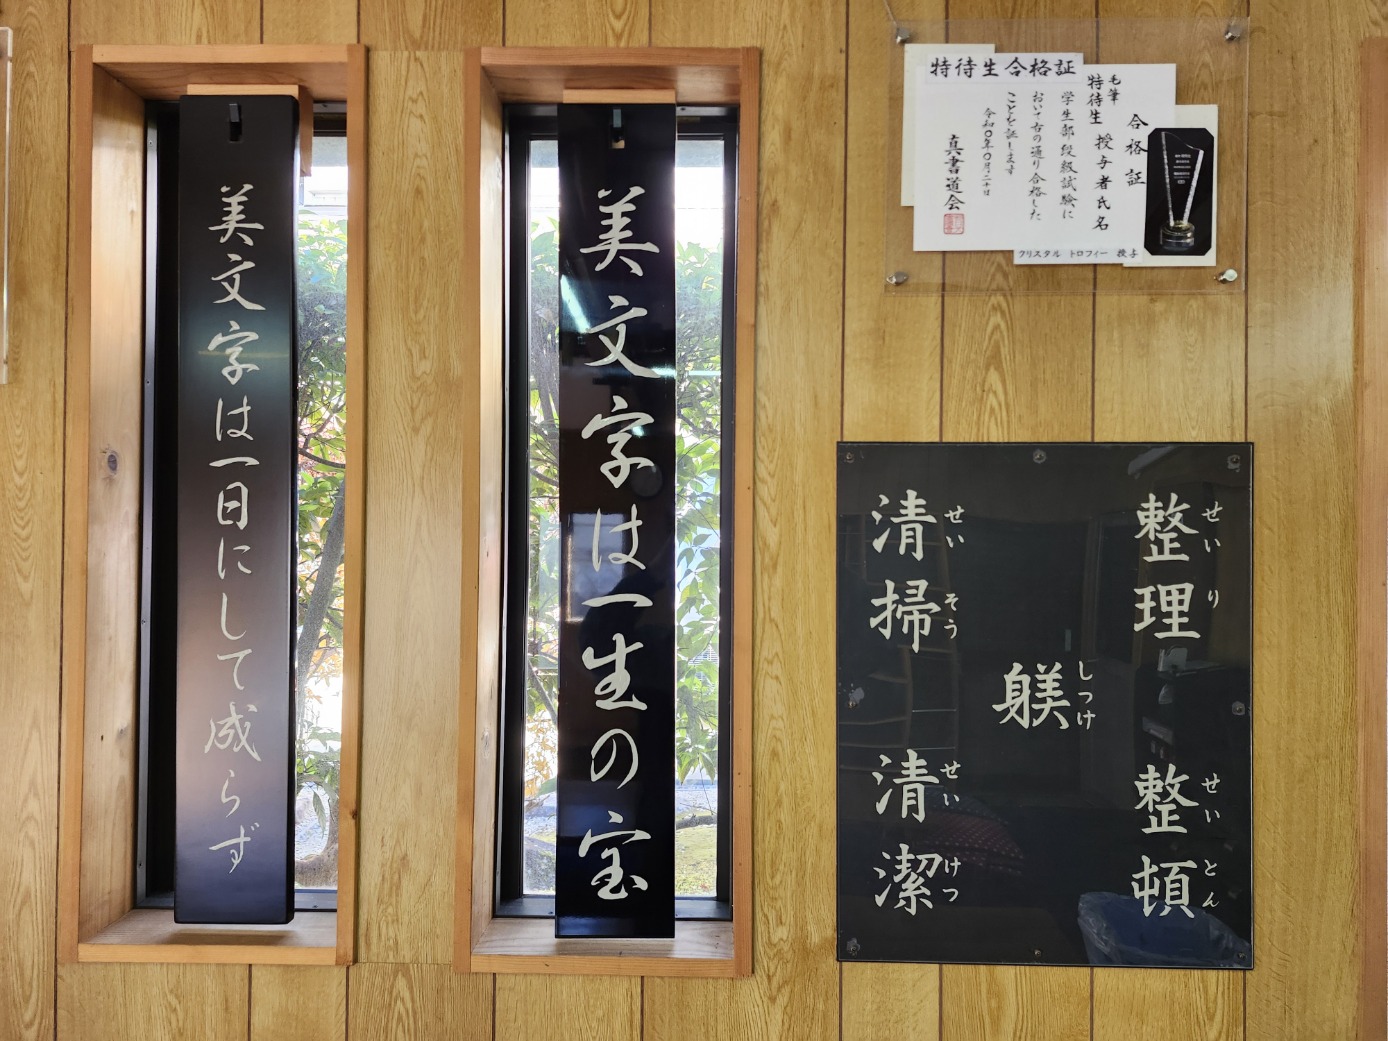 美文字は一日にして成らず
美文字は一生の宝
特待生合格証
毛筆
特待生
合格証
授与者氏名
学生部段級試験に
おいて右の通り合格した
ことを証します
令和〇年〇月二十日
真書道会
クリスタル トロフィー 授与
整理
せいり
整頓
せいとん
躾
しつけ
清掃
せいそう
清潔
せいけつ